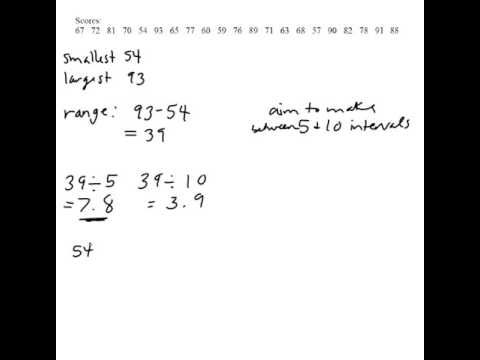 Scores:
67 72 81 70 54 93 65 77 60 59 79 71 63 68 57 90 82 78 91 88
smallest 54
largest 93
range: 93-54
= 39
aim to make
between 5 + 10 intervals
39÷5 39÷10
=7.8 = 3.9
54